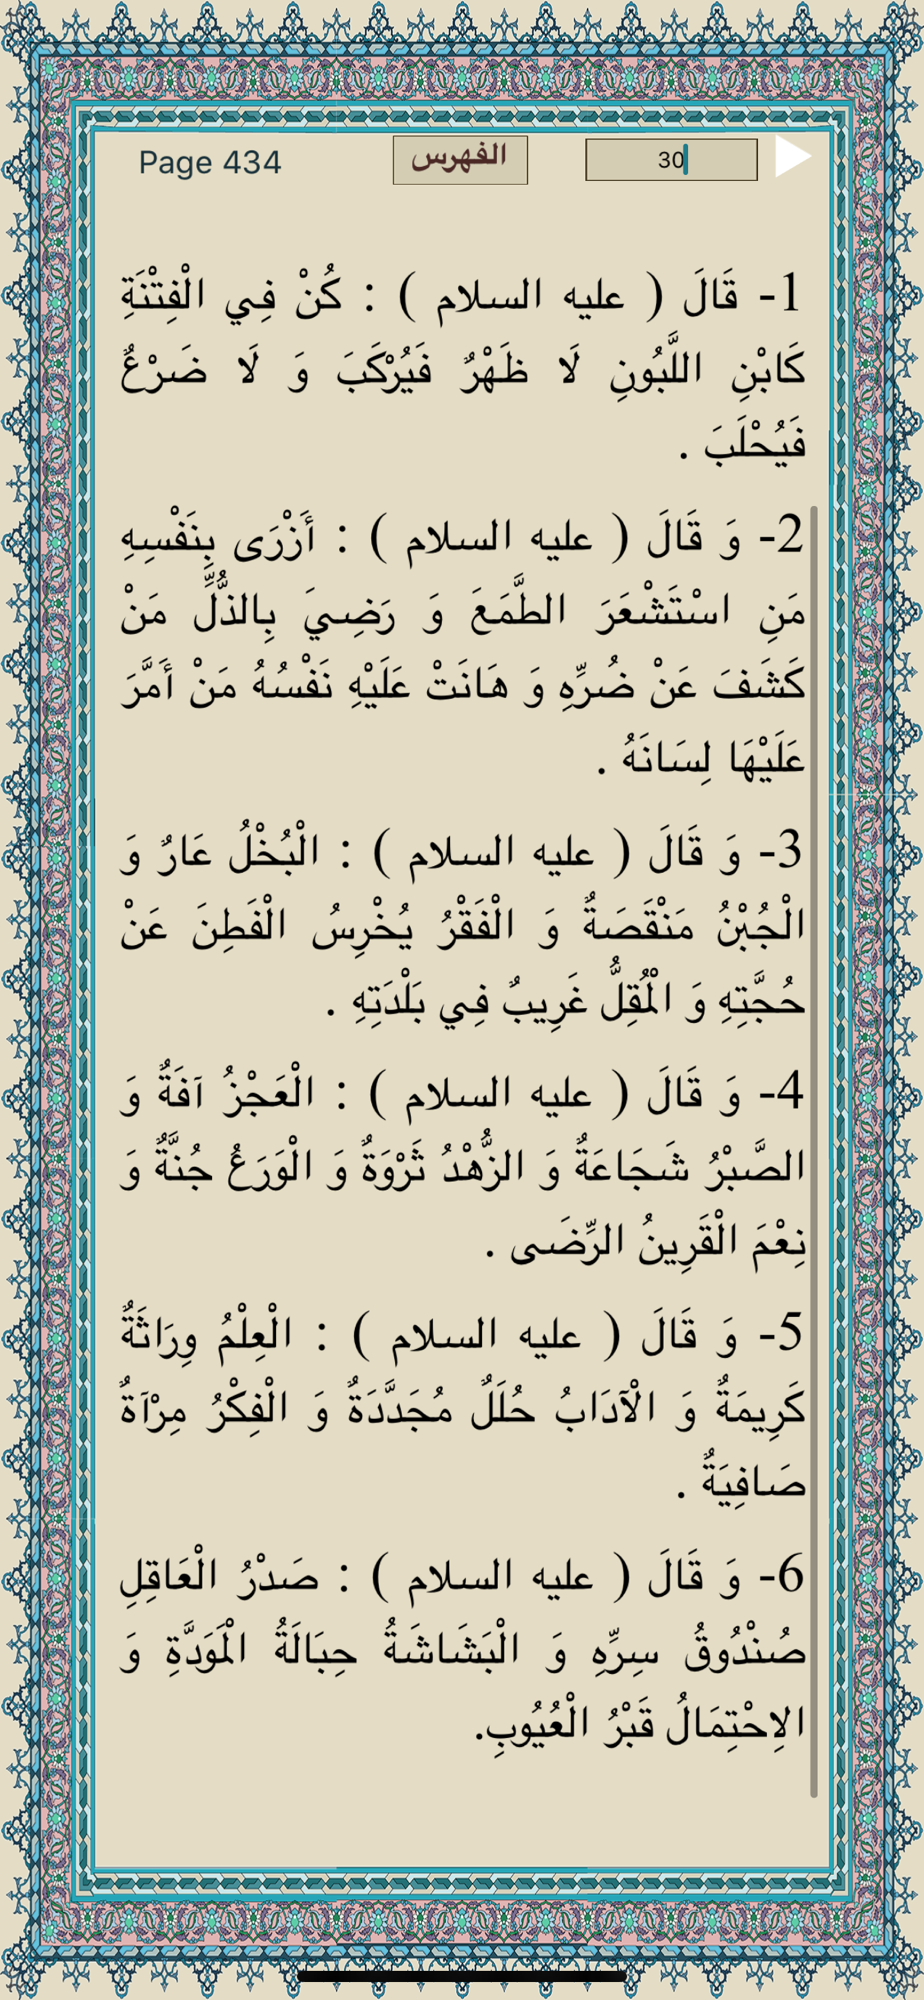 Page 434
الفهرس
30
1- قَالَ ( عليه السلام ) : كُنْ فِي الْفِتْنَةِ
كَابْنِ اللَّبُونِ لَا ظَهْرٌ فَيُرْكَبَ وَ لَا ضَرْعٌ
فَيُحْلَبَ .
2- وَ قَالَ ( عليه السلام ) : أَزْرَى بِنَفْسِهِ
مَنِ اسْتَشْعَرَ الطَّمَعَ وَ رَضِيَ بِالذُّلِّ مَنْ
كَشَفَ عَنْ ضُرِّهِ وَ هَانَتْ عَلَيْهِ نَفْسُهُ مَنْ أَمَّرَ
عَلَيْهَا لِسَانَهُ .
3- وَ قَالَ ( عليه السلام ) : الْبُخْلُ عَارٌ وَ
الْجُبْنُ مَنْقَصَةٌ وَ الْفَقْرُ يُخْرِسُ الْفَطِنَ عَنْ
حُجَّتِهِ وَ الْمُقِلُّ غَرِيبٌ فِي بَلْدَتِهِ .
4- وَ قَالَ ( عليه السلام ) : الْعَجْزُ آفَةٌ وَ
الصَّبْرُ شَجَاعَةٌ وَ الزُّهْدُ ثَرْوَةٌ وَ الْوَرَعُ جُنَّةٌ وَ
نِعْمَ الْقَرِينُ الرِّضَى .
5- وَ قَالَ ( عليه السلام ) : الْعِلْمُ وِرَاثَةٌ
كَرِيمَةٌ وَ الْآدَابُ حُلَلٌ مُجَدَّدَةٌ وَ الْفِكْرُ مِرْآةٌ
صَافِيَةٌ .
6- وَ قَالَ ( عليه السلام ) : صَدْرُ الْعَاقِلِ
صُنْدُوقُ سِرِّهِ وَ الْبَشَاشَةُ حِبَالَةُ الْمَوَدَّةِ وَ
الِاحْتِمَالُ قَبْرُ الْعُيُوبِ.